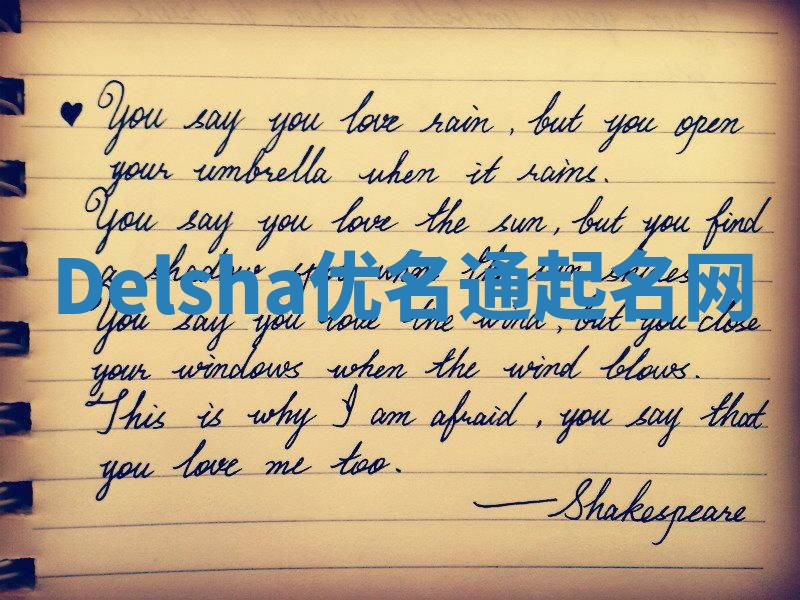 ♥ You say you love rain, but you open
your umbrella when it rains.
You say you love the sun, but you find
a shadow spot when the sun shines.
Delsha优名通起名网
You say you love the wind, but you close
your windows when the wind blows.
This is why I am afraid, you say that
you love me too.
—Shakespeare